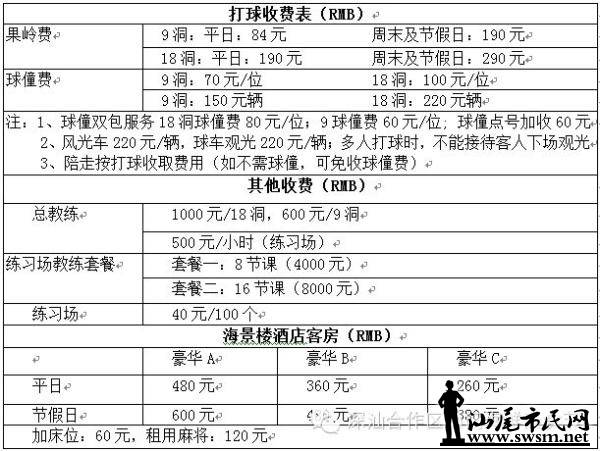 打球收费表（RMB）
果岭费 9洞：平日：84元 周末及节假日：190元
18洞：平日：190元 周末及节假日：290元
球僮费 9洞：70元/位 18洞：100元/位
9洞：150元辆 18洞：220元/辆
注：1、球僮双包服务18洞球僮费80元/位；9球僮费60元/位; 球僮点号加收60元
2、风光车220元/辆，球车观光220元/辆；多人打球时，不能接待客人下场观光
3、陪走按打球收取费用（如不需球僮，可免收球僮费）
其他收费（RMB）
总教练 1000元/18洞，600元/9洞
500元/小时（练习场）
练习场教练套餐 套餐一：8节课（4000元）
套餐二：16节课（8000元）
练习场 40元/100个
海景楼酒店客房（RMB）
豪华A 豪华B 豪华C
平日 480元 360元 260元
节假日 600元
加床位：60元，租用麻将：120元
深汕合作区
汕尾市民网
www.swsm.net